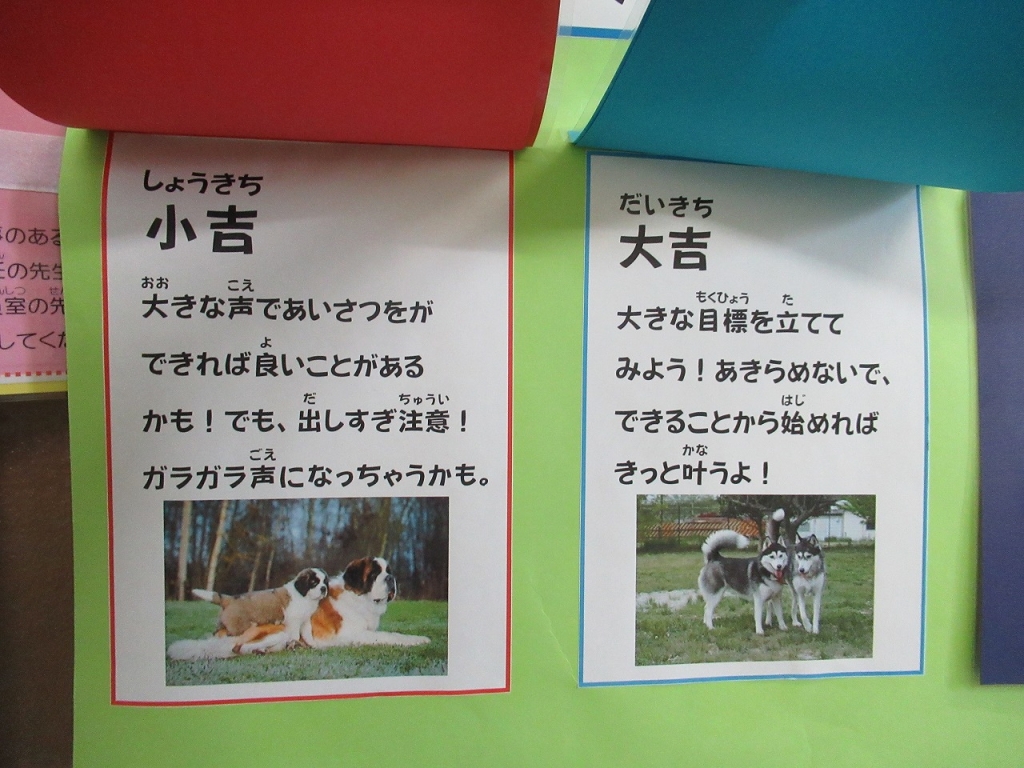 しょうきち
小吉
おお こえ
大きな声であいさつをが
よ
できれば良いことがある
だ ちゅうい
かも！でも、出しすぎ注意！
ごえ
ガラガラ声になっちゃうかも。
だいきち
大吉
もくひょう た
大きな目標を立てて
みよう！あきらめないで、
はじ
できることから始めれば
かな
きっと叶うよ！
のある
の先生
室の先
してくだ